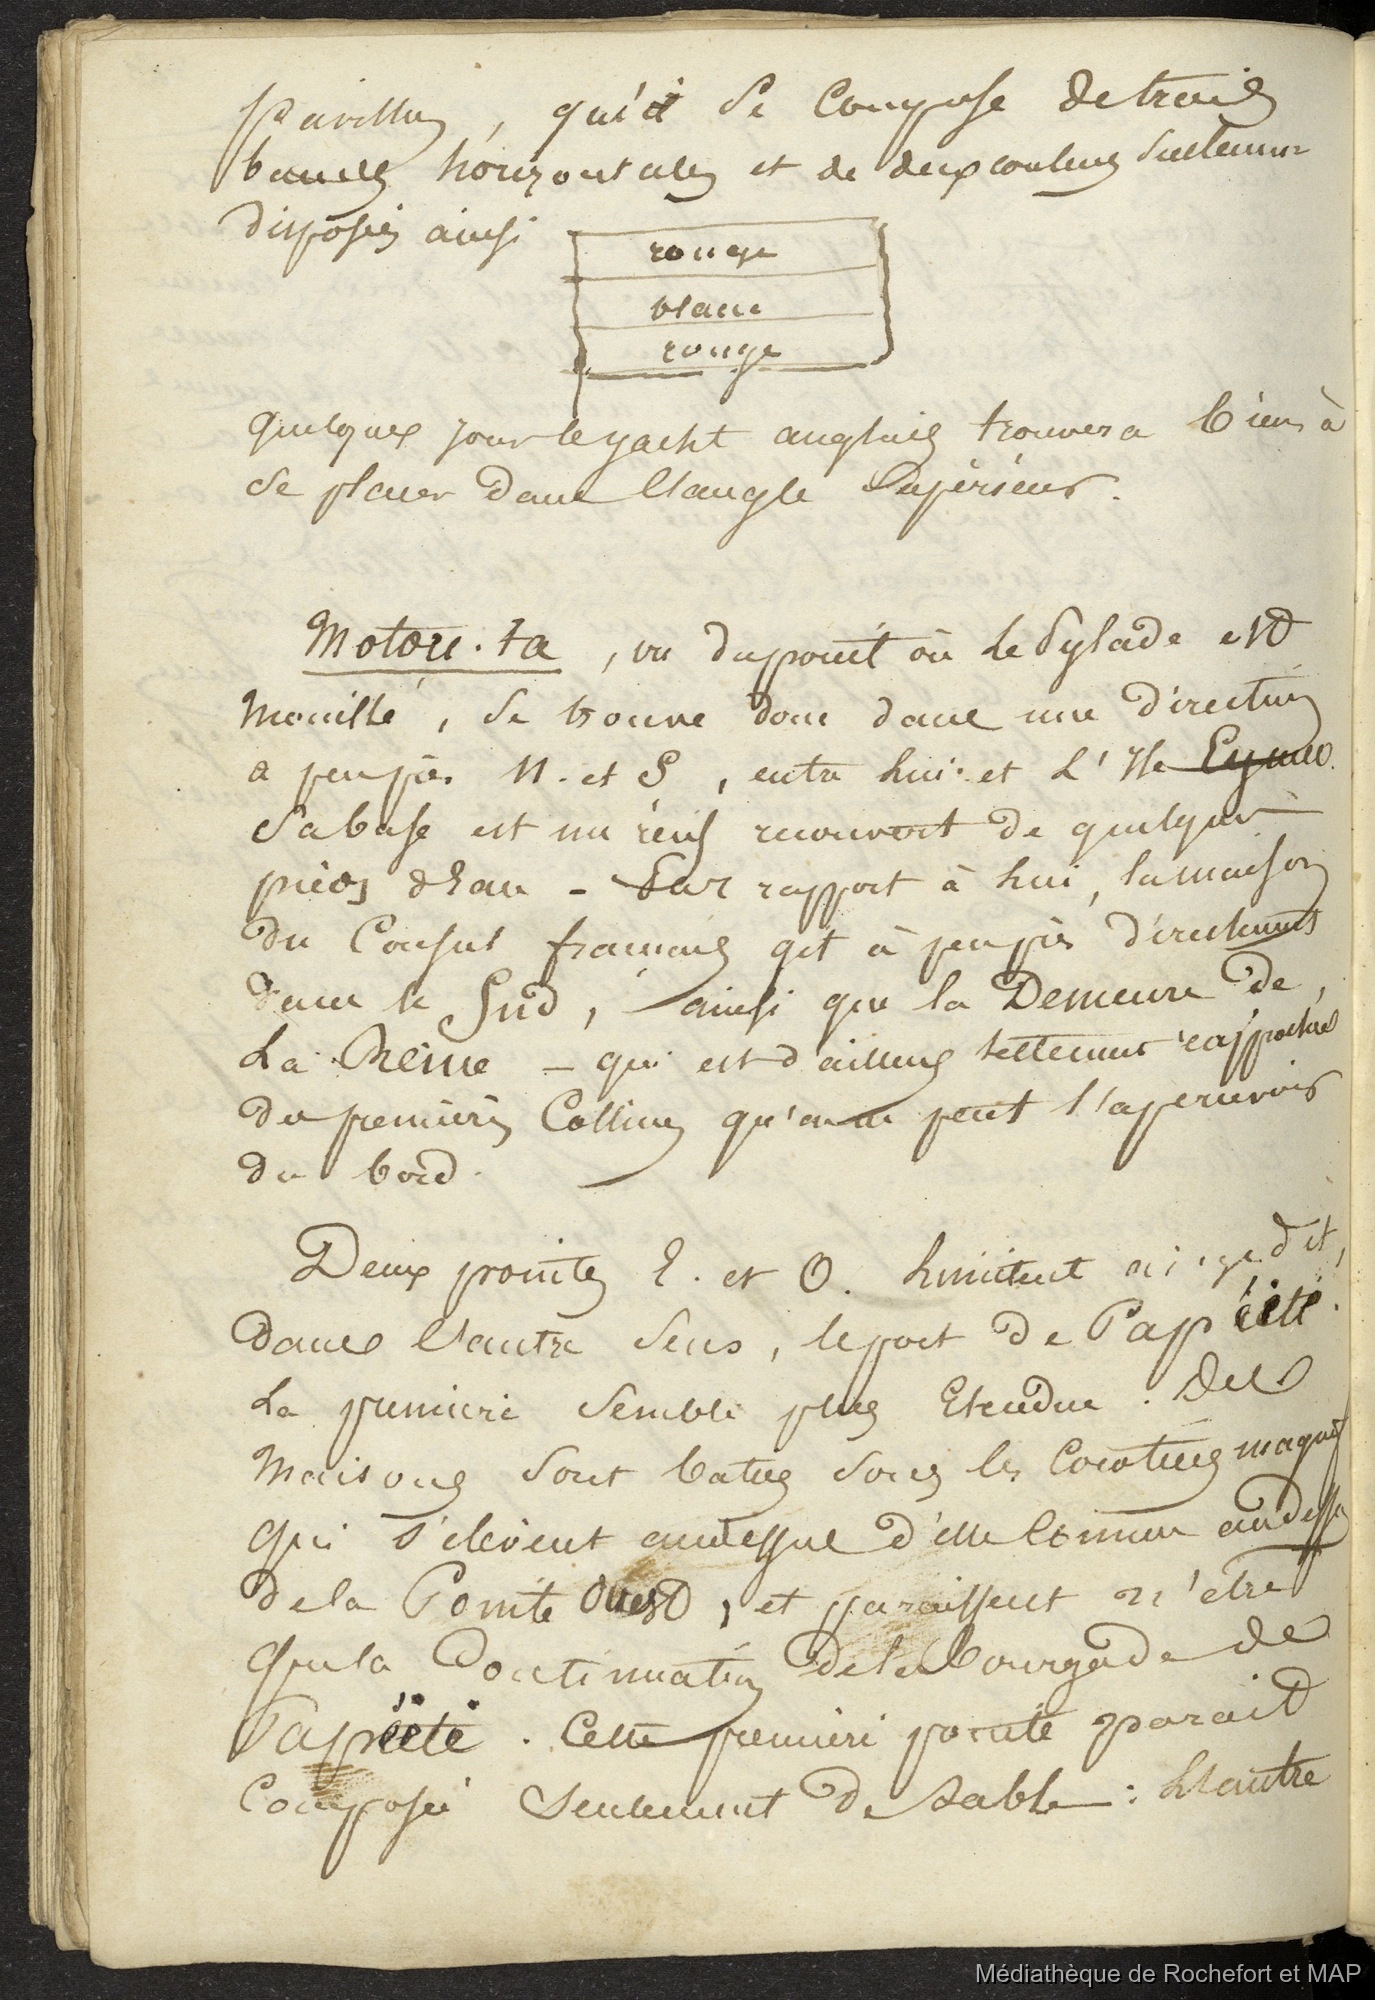 pavillon, qui se Compose de trois
bandes horizontales et de deux couleurs seulement
disposés ainsi
rouge
blanc
rouge
quelques jour le yacht anglais trouvera bien à
se placer dans l'angle supérieur.
Motou-ta, vu du point où le Pylade est
mouillé, se trouve donc dans une direction
a peu près N. et S, entre lui et l'Ile
Sa base est un récif recouvert de quelques
pieds d'eau - Par rapport à lui, la maison
du Consul français git à peu près directement
dans le Sud, ainsi que la Demeure de
La Reine - qui est d'ailleurs tellement rapprochée
des premières Collines qu'on ne peut l'apercevoir
du bord.
Deux pointes E. et O. limitent ai-je dit,
dans l'autre sens, le port de Papéïté.
La première semble plus Etendue. Des
maisons sont baties sous les Cocotiers magnif
qui s'élèvent audessus d'elle comme au dessus
de la Pointe Ouest, et paraissent n'être
que la Continuation de la Bourgade de
Papéïté. Cette première pointe parait
Composée seulement de sable : L'autre
Médiathèque de Rochefort et MAP